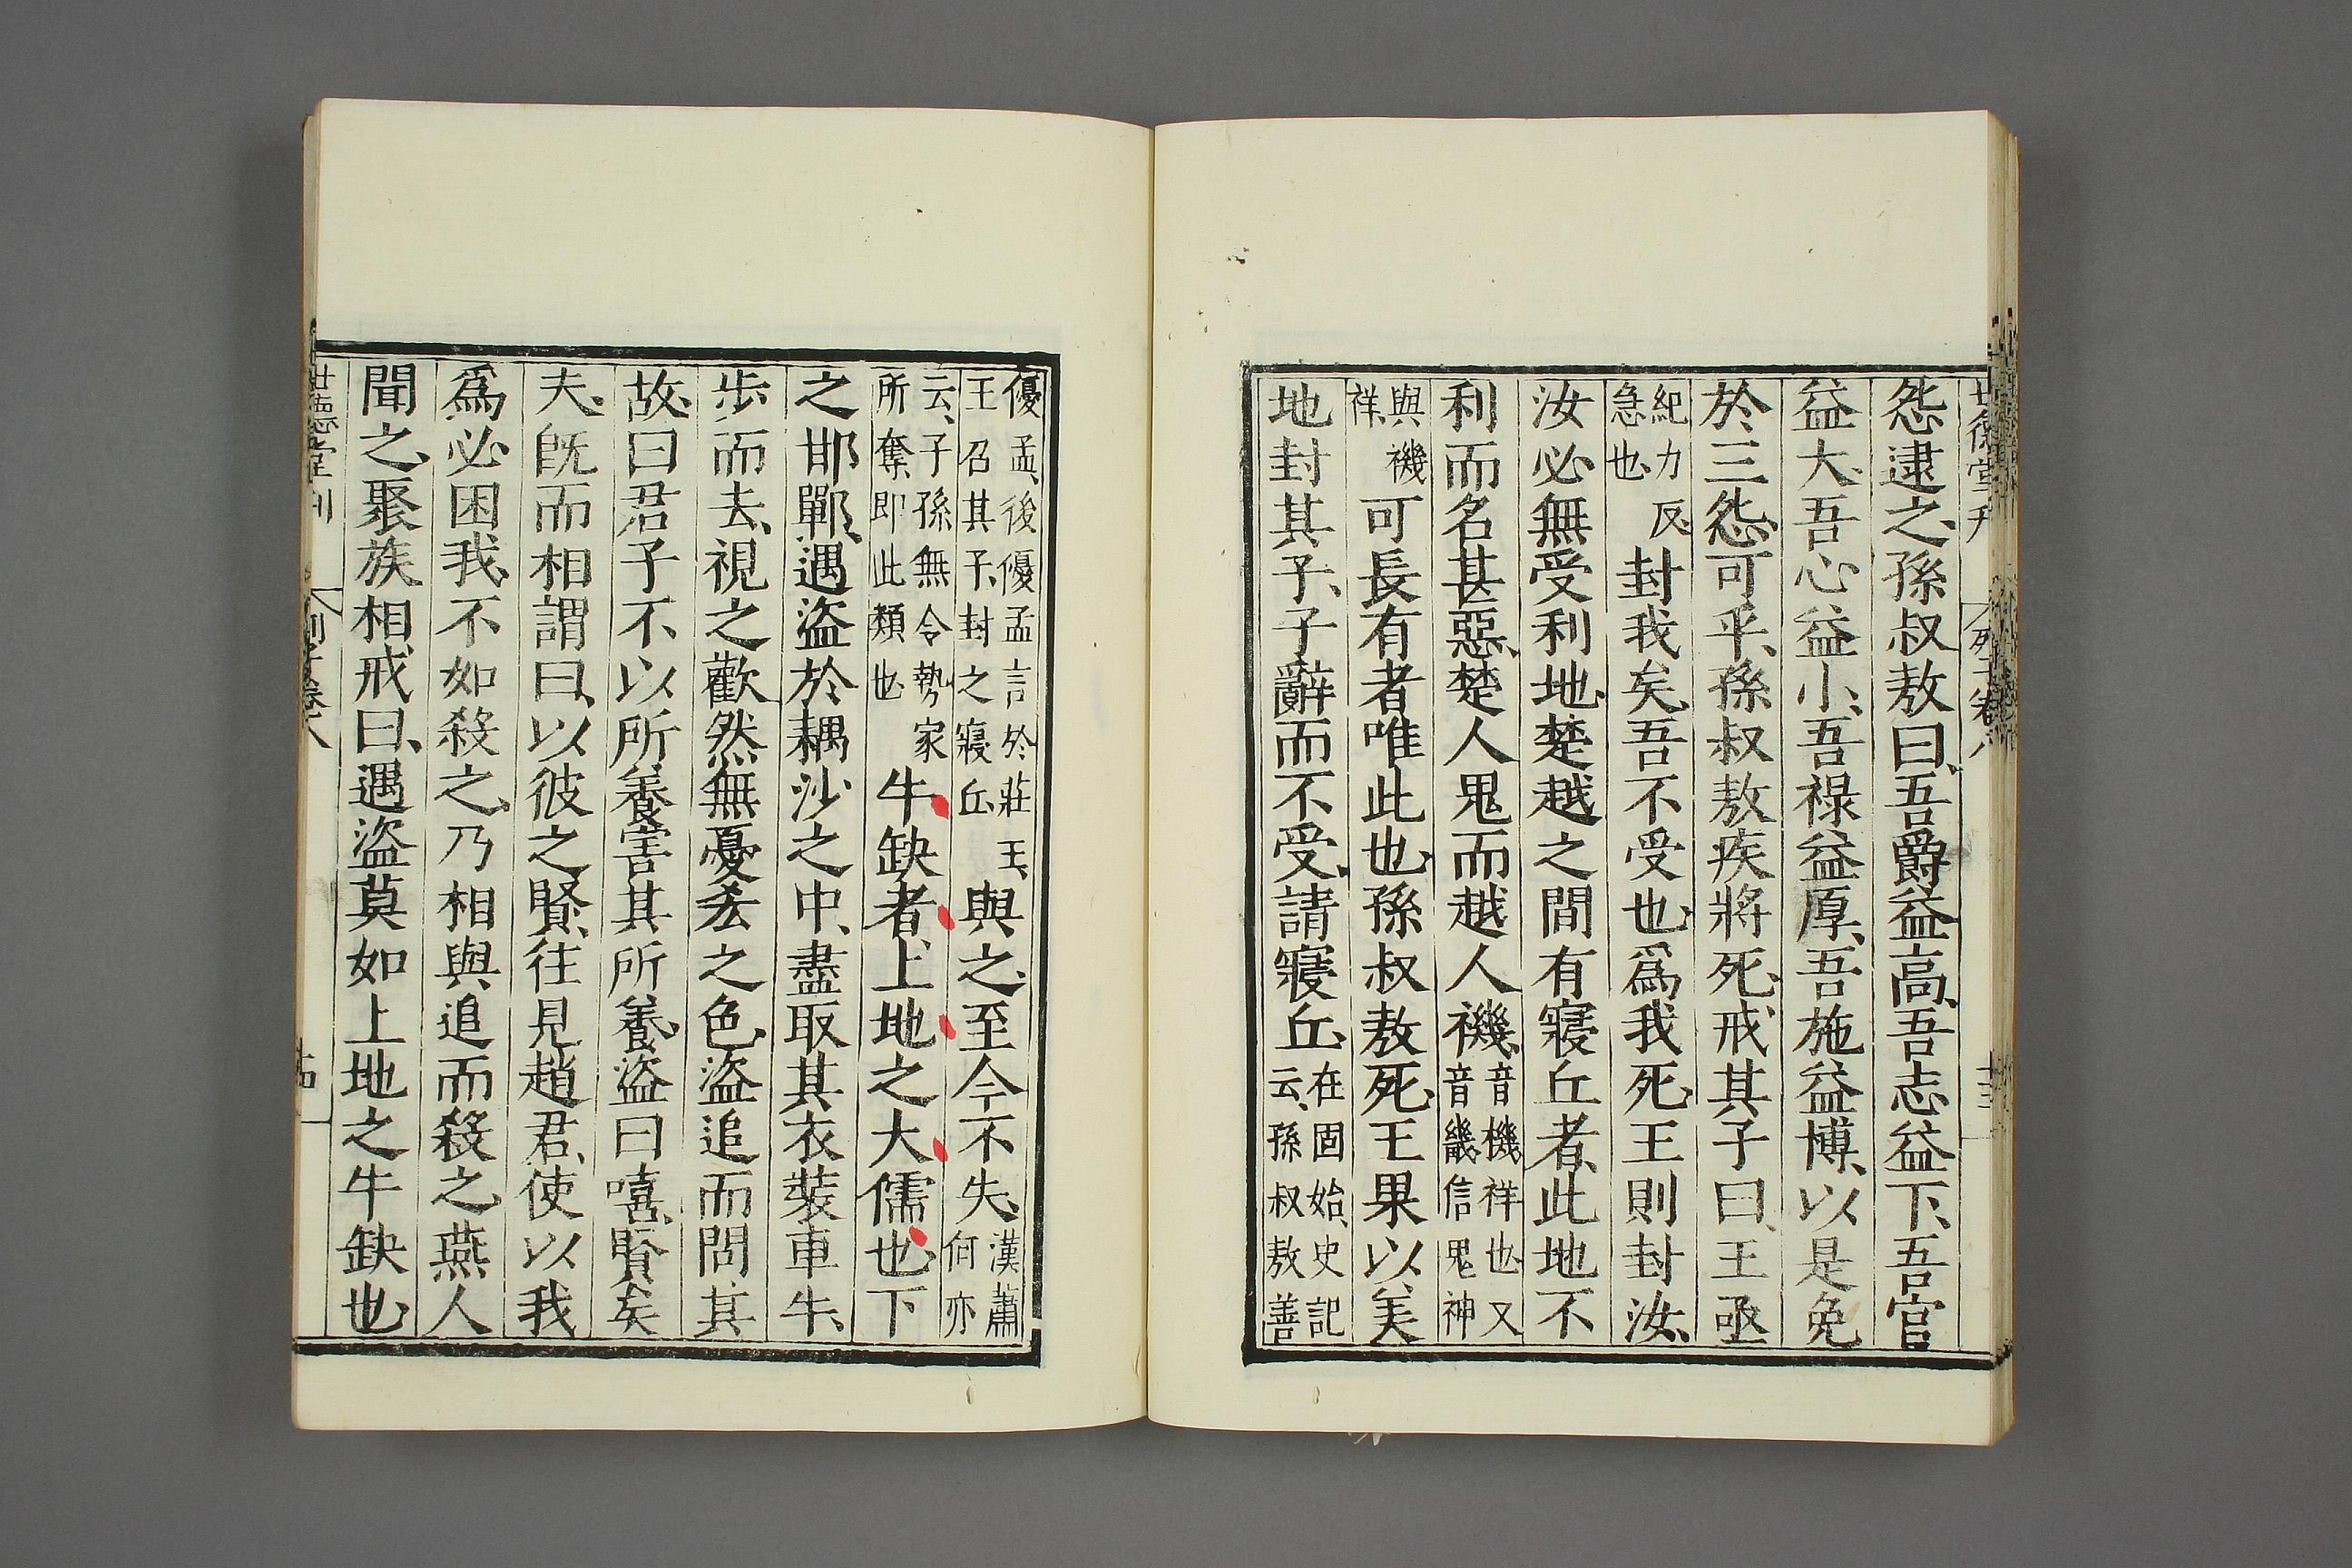 怨逮之、孫叔敖曰、吾爵益高、吾志益下、吾官
益大、吾心益小、吾祿益厚、吾施益博、以是免
於三怨、可乎、孫叔敖疾將死、戒其子曰、王亟
紀力反急也、封我矣、吾不受也、爲我死、王則封汝、
汝必無受利地、楚越之間有寢丘者、此地不
利而名甚惡、楚人鬼而越人禨、音機祥也、又音畿信鬼神
與禨祥、可長有者唯此也、孫叔敖死、王果以美
地封其子、子辭而不受、請寢丘、在固始、史記云、孫叔敖善
優孟、後優孟言於莊王、王召其子、封之寢丘、與之、至今不失、漢蕭何亦
云、子孫無令勢家所奪、即此類也、牛缺者、上地之大儒也、下
之邯鄲、遇盜於耦沙之中、盡取其衣裝車牛、
步而去、視之歡然無憂𠫤之色、盜追而問其
故、曰君子不以所養害其所養、盜曰嘻、賢矣
夫、旣而相謂曰、以彼之賢、往見趙君、使以我
爲必困我、不如殺之、乃相與追而殺之、燕人
聞之、聚族相戒曰、遇盜莫如上地之牛缺也、
世德堂刊 列子卷八 十四